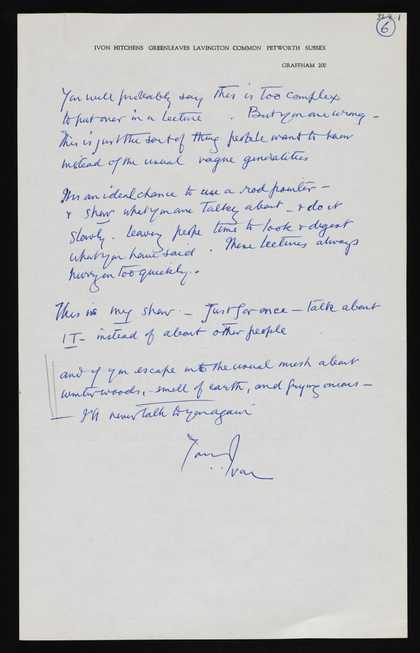 6
IVON HITCHENS GREENLEAVES LAVINGTON COMMON PETWORTH SUSSEX
GRAFFHAM 200
You will probably say this is too complex
to put over in a lecture. But you are wrong –
This is just the sort of thing people want to know
instead of the usual vague generalities
It's an ideal chance to use a rod pointer –
& show what you are talking about – & do it
slowly. leaving people time to look & digest
what you have said. These lectures always
hurry on too quickly.
This is my show – Just for once – talk about
IT – instead of about other people
and if you escape into the usual mush about
winter woods, smell of earth, and frying onions –
I'll never talk to you again
Yours Ivon